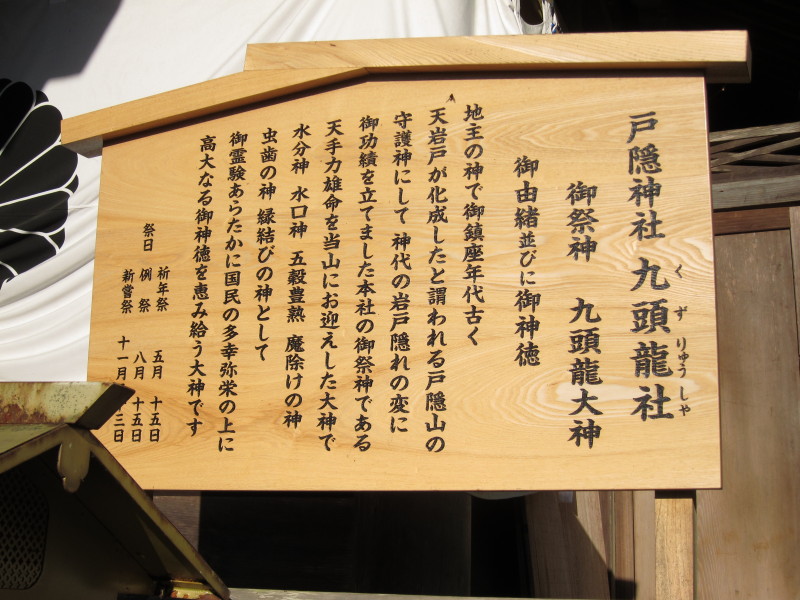 戸隠神社 九頭龍社
くずりゅうしゃ
御祭神 九頭龍大神
御由緒並びに御神徳
地主の神で御鎮座年代古く
天岩戸が化成したと謂われる戸隠山の
守護神にして 神代の岩戸隠れの変に
御功績を立てました本社の御祭神である
天手力雄命を当山にお迎えした大神で
水分神 水口神 五穀豊熟 魔除けの神
虫歯の神 縁結びの神として
御霊験あらたかに国民の多幸弥栄の上に
高大なる御神徳を恵み給う大神です
祭日 祈年祭 五月 十五日
例祭 八月 十五日
新嘗祭 十一月 三日